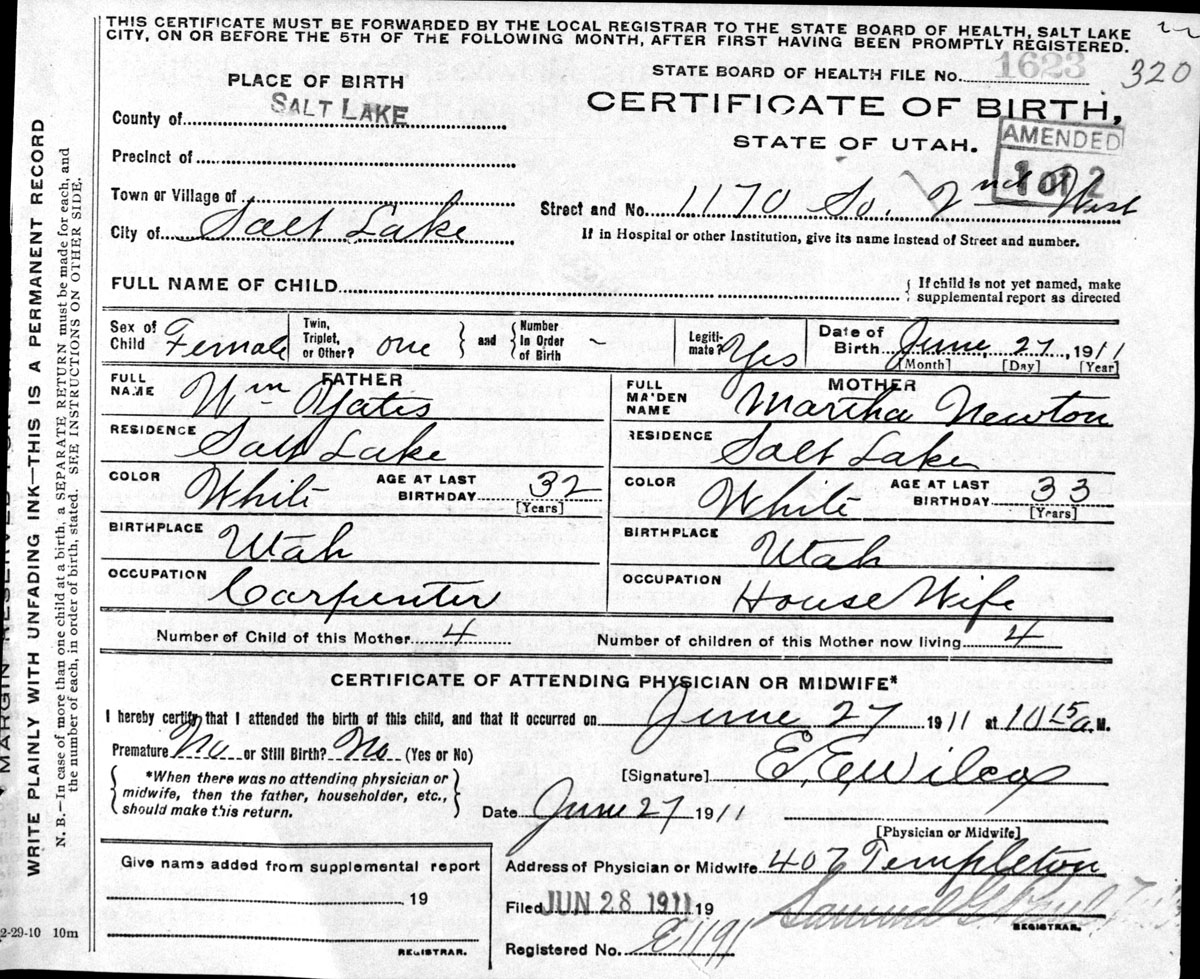 THIS CERTIFICATE MUST BE FORWARDED BY THE LOCAL REGISTRAR TO THE STATE BOARD OF HEALTH, SALT LAKE
CITY, ON OR BEFORE THE 5TH OF THE FOLLOWING MONTH, AFTER FIRST HAVING BEEN PROMPTLY REGISTERED.
STATE BOARD OF HEALTH FILE No. 1623
320
PLACE OF BIRTH
CERTIFICATE OF BIRTH,
STATE OF UTAH.
AMENDED
1 of 2
County of SALT LAKE
Precinct of
Town or Village of
City of Salt Lake
Street and No. 1170 So. 2nd West
If in Hospital or other Institution, give its name instead of Street and number.
FULL NAME OF CHILD
{ If child is not yet named, make
supplemental report as directed
Sex of Child Female
Twin, Triplet, or Other? one } and { Number In Order of Birth -
Legiti-mate? Yes
Date of Birth June, 27, 1911
[Month] [Day] [Year]
FATHER
FULL NAME Wm Yates
RESIDENCE Salt Lake
COLOR White AGE AT LAST BIRTHDAY 32
[Years]
BIRTHPLACE Utah
OCCUPATION Carpenter
MOTHER
FULL MAIDEN NAME Martha Newton
RESIDENCE Salt Lake
COLOR White AGE AT LAST BIRTHDAY 33
[Years]
BIRTHPLACE Utah
OCCUPATION House Wife
Number of Child of this Mother 4 Number of children of this Mother now living 4
CERTIFICATE OF ATTENDING PHYSICIAN OR MIDWIFE*
I hereby certify that I attended the birth of this child, and that it occurred on June 27 1911 at 10 15 a.M.
Premature No or Still Birth? No (Yes or No)
{ *When there was no attending physician or
midwife, then the father, householder, etc.,
should make this return. }
[Signature] E. E. Wilcox
Date June 27 1911
[Physician or Midwife]
Address of Physician or Midwife 407 Templeton
Give name added from supplemental report
19
REGISTRAR.
Filed JUN 28 1911 19
Samuel G.
REGISTRAR.
Registered No. E1191
2-29-10 10m
WRITE PLAINLY WITH UNFADING INK—THIS IS A PERMANENT RECORD
N. B.—In case of more than one child at a birth, a SEPARATE RETURN must be made for each, and
the number of each, in order of birth, stated. SEE INSTRUCTIONS ON OTHER SIDE.